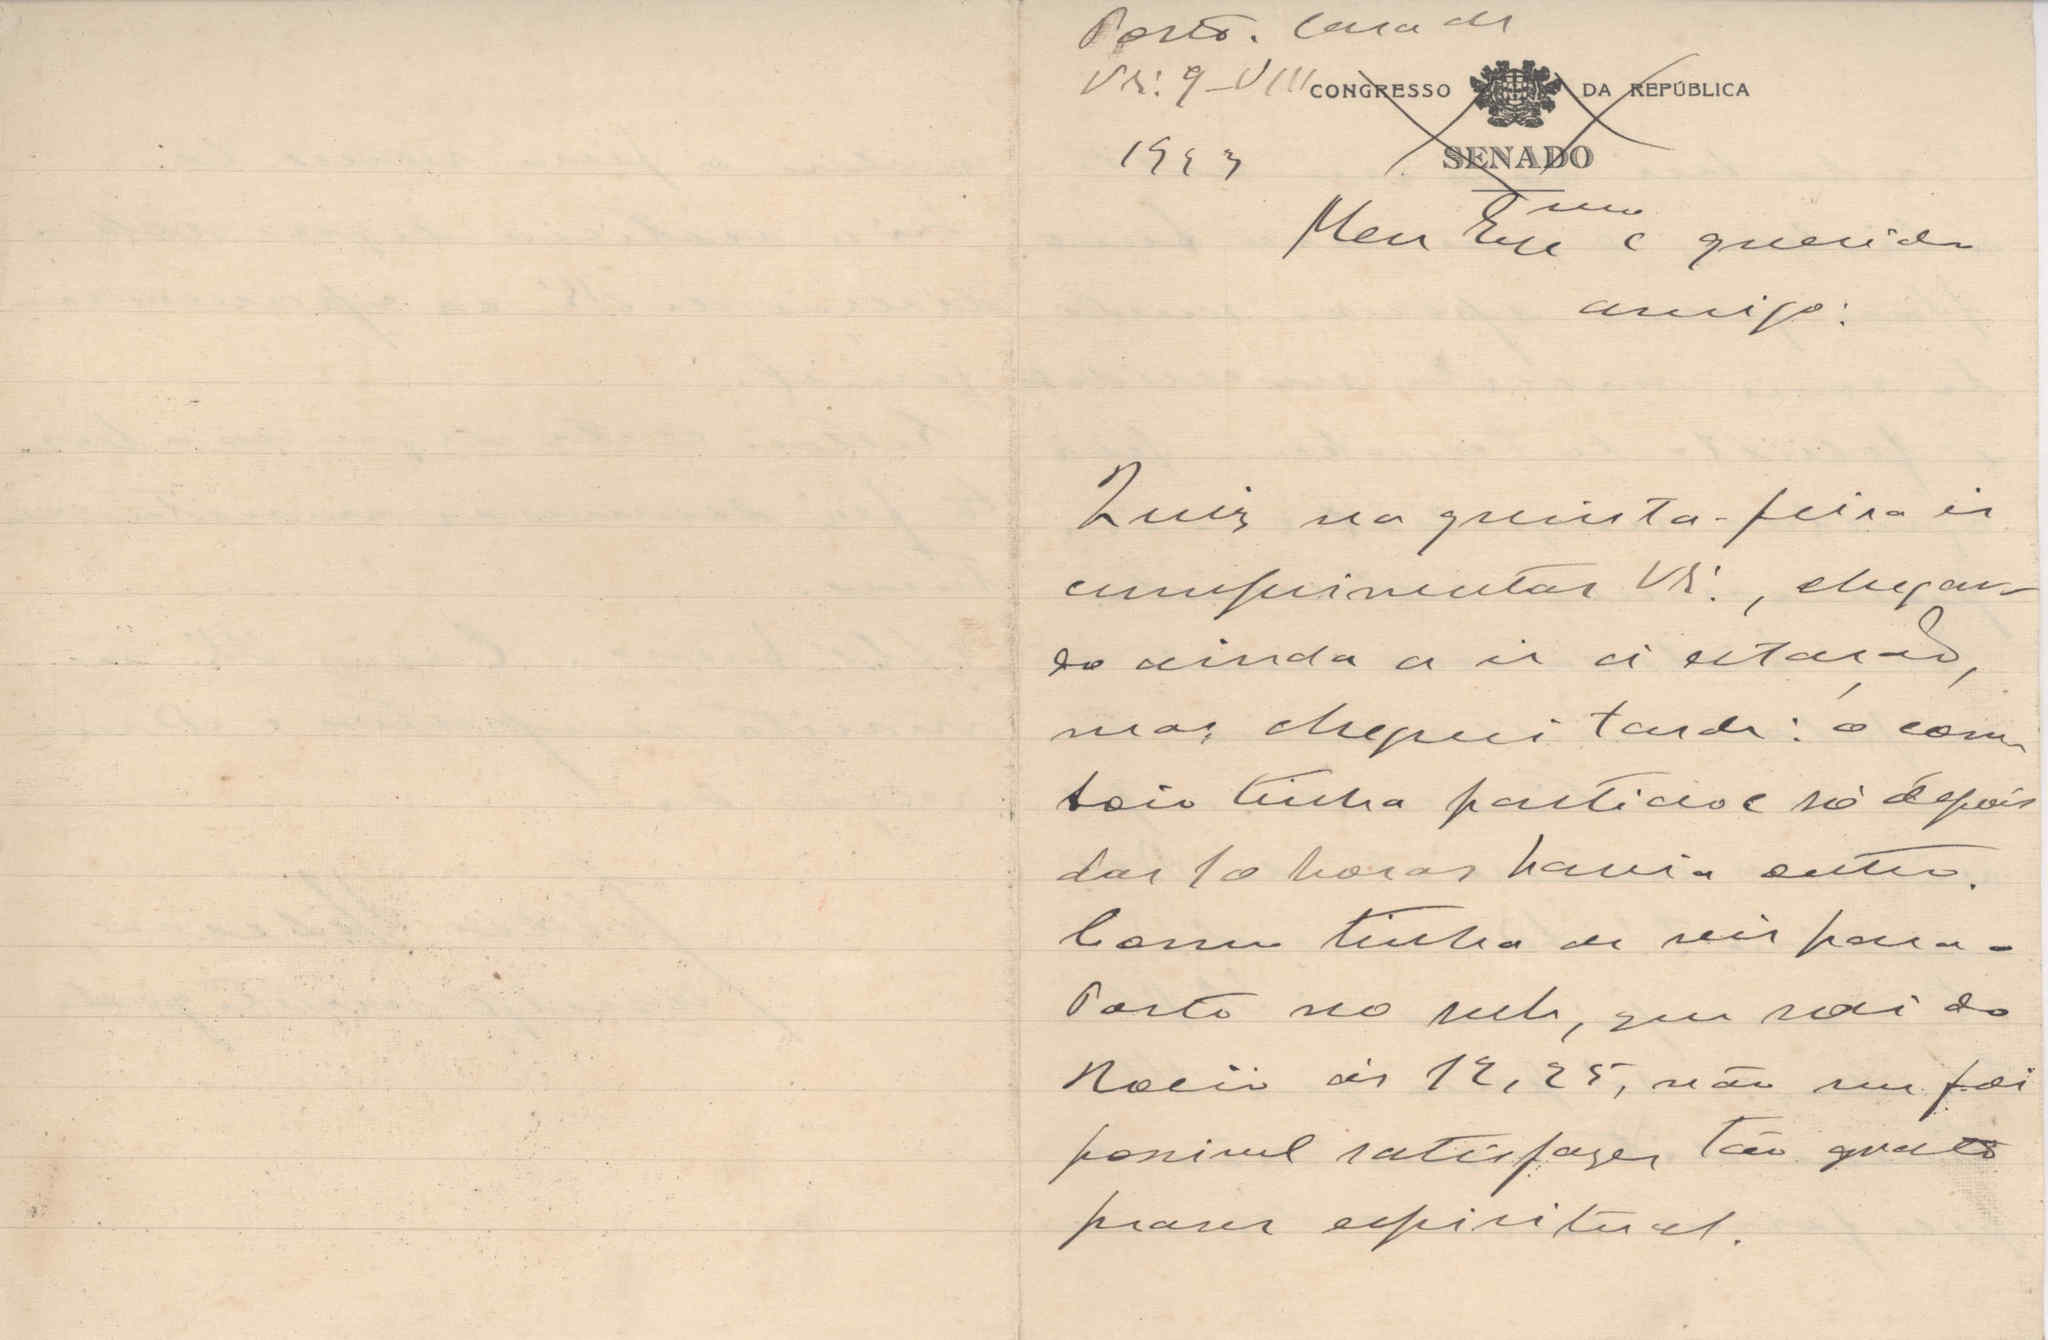 Porto. Casa de
V. Ex.ª 9-VIII
1923
CONGRESSO DA REPÚBLICA
SENADO
Meu Exmo e querido
amigo:
Quiz na quinta-feira ir
cumprimentar V. Ex.ª, chegan-
do ainda a ir á estação,
mas cheguei tarde: o com-
boio tinha partido e só depois
das 10 horas havia outro.
Como tinha de vir para o
Porto no, que sai do
Rocio ás 12,25, não me foi
possivel satisfazer tão grato
prazer espiritual.